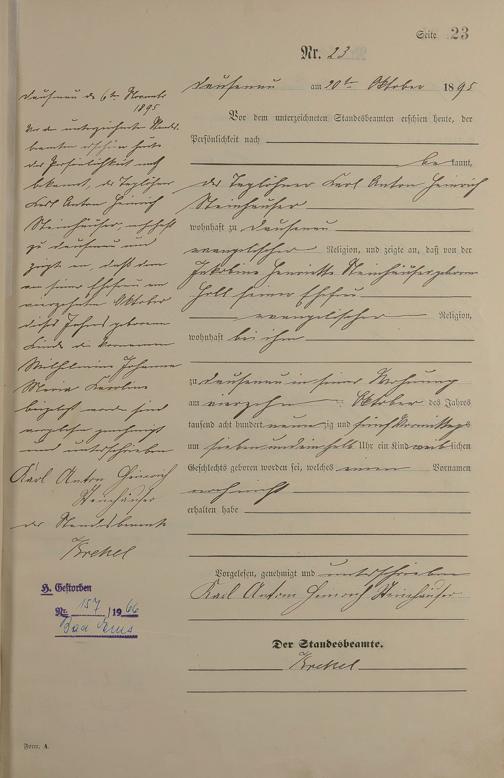 Seite 23
Nr. 23
Dausenau am 20ten Oktober 1895
Vor dem unterzeichneten Standesbeamten erschien heute, der
Persönlichkeit nach
bekannt,
der Taglöhner Karl Anton Heinrich
Steinhäuser
wohnhaft zu Dausenau
evangelischer Religion, und zeigte an, daß von der
Jakobine Henriette Steinhäuser geborene
seiner Ehefrau
evangelischer Religion,
wohnhaft bei ihm
zu Dausenau in seiner Wohnung
am vierzehn Oktober des Jahres
tausend acht hundert neunzig und fünf Vormittags
um sieben und einhalb Uhr ein Kind weiblichen
Geschlechts geboren worden sei, welches einen Vornamen
noch nicht
erhalten habe
Vorgelesen, genehmigt und unterschrieben
Karl Anton Heinrich Steinhäuser
Der Standesbeamte.
Krekel
Dausenau den 6ten Novemb
1895
Vor dem unterzeichneten Standes-
beamten erschien heute
der Persönlichkeit nach
bekannt, der Taglöhner
Karl Anton Heinrich
Steinhäuser, wohnhaft
zu Dausenau und
zeigte an, daß dem
von seiner Ehefrau am
vierzehnten Oktober
dieses Jahres geborenen
Kinde die Vornamen
Wilhelmine Johanna
Maria Karoline
beigelegt worden sind
vorgelesen genehmigt
und unterschrieben
Karl Anton Heinrich
Steinhäuser
der Standesbeamte
Krekel
H. Gestorben
Nr. 157/1966
Bad Ems
Form. A.